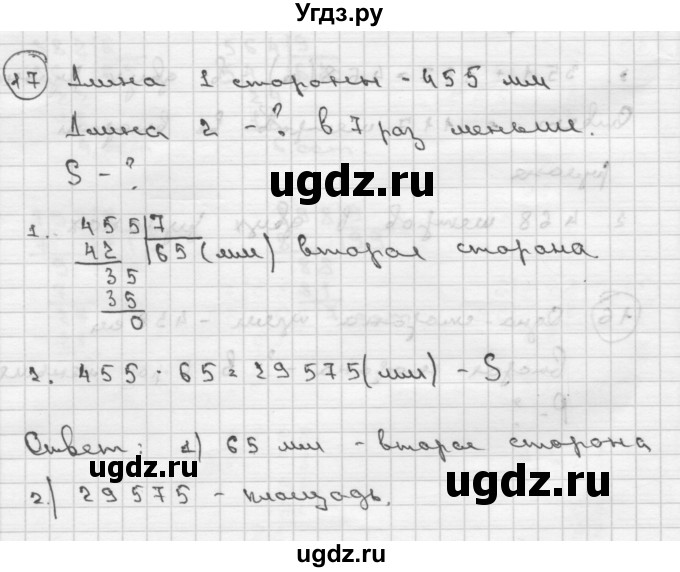 Угдз.ру
17 Длина 1 стороны - 455 мм
Длина 2 - ? в 7 раз меньше.
S - ?
ugdz.ru
ugdz.ru
1. 455 7
42 65 (мм) вторая сторона
35
35
0
ugdz.ru
2. 455 · 65 = 29575 (мм) - S.
Ответ: 1) 65 мм - вторая сторона
ugdz.ru
ugdz.ru
2) 29575 - площадь.
ugdz.ru